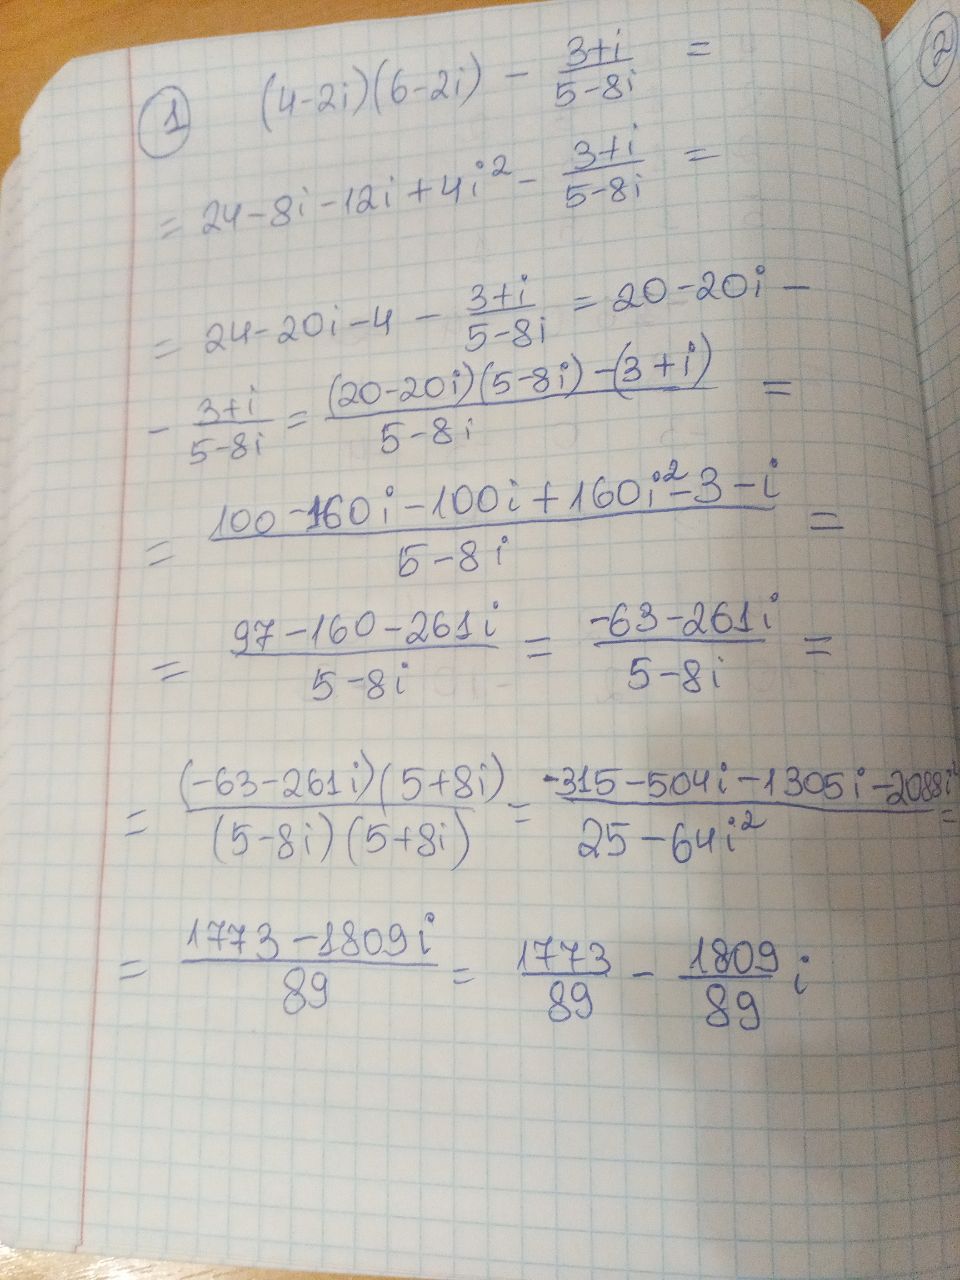 ① (4-2i)(6-2i) - \frac{3+i}{5-8i} =
= 24-8i-12i+4i² - \frac{3+i}{5-8i} =
= 24-20i-4 - \frac{3+i}{5-8i} = 20-20i -
- \frac{3+i}{5-8i} = \frac{(20-20i)(5-8i)-(3+i)}{5-8i} =
= \frac{100-160i-100i+160i²-3-i}{5-8i} =
= \frac{97-160-261i}{5-8i} = \frac{-63-261i}{5-8i} =
= \frac{(-63-261i)(5+8i)}{(5-8i)(5+8i)} = \frac{-315-504i-1305i-2088i²}{25-64i²} =
= \frac{1773-1809i}{89} = \frac{1773}{89} - \frac{1809}{89} i
②